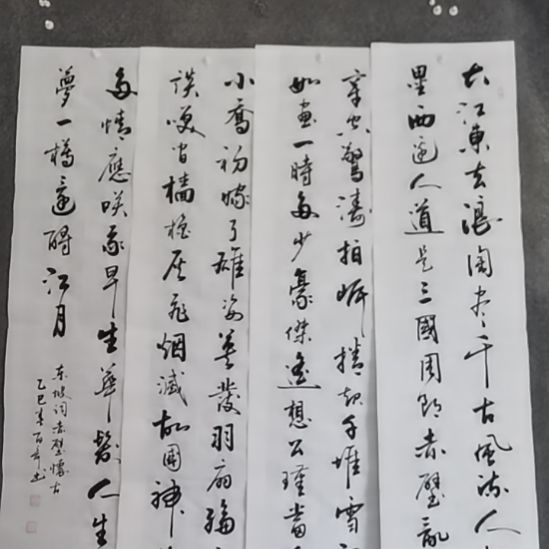 大江東去浪淘盡千古風流人
壘西邊人道是三國周郎赤壁亂
穿空驚濤拍岸捲起千堆雪
如畫一時多少豪傑遙想公瑾當
小喬初嫁了雄姿英發羽扇綸
談笑间檣櫓灰飛烟滅故國神
多情應笑我早生華髮人生
夢一樽還酹江月
东坡词赤壁懷古
乙巳春百年书